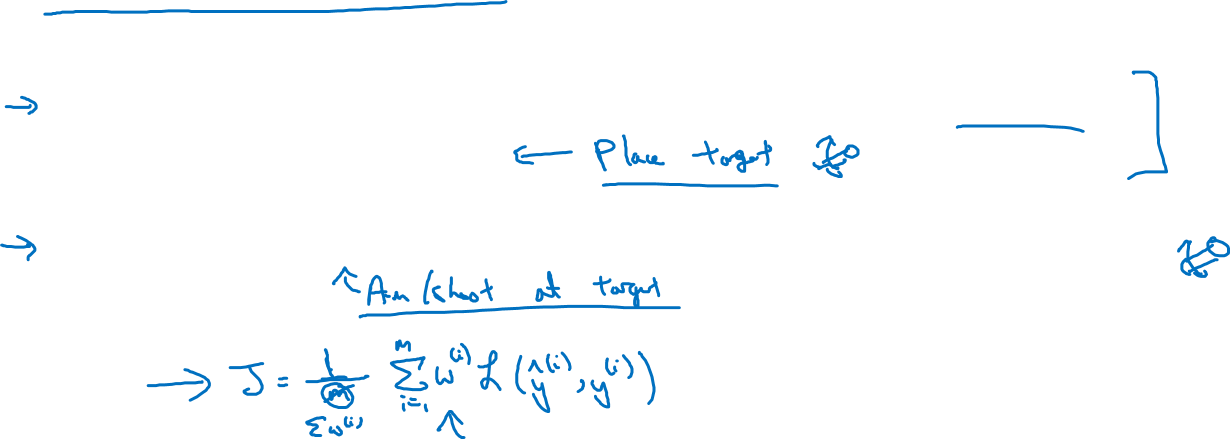 ← Place target
↑ Aim/shoot at target
→ J = 1/m ∑w⁽ⁱ⁾ ∑ᵢ₌₁ᵐ w⁽ⁱ⁾ ℒ(ŷ⁽ⁱ⁾, y⁽ⁱ⁾)